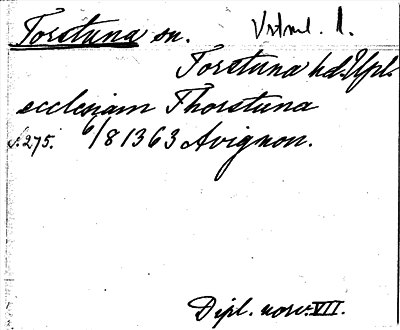 Torstuna sn. Vstml. l.
Torstuna hd. Upl.
ecclesiam Thorstuna
s. 275. 6/8 1363 Avignon.
Dipl. norv. VII.